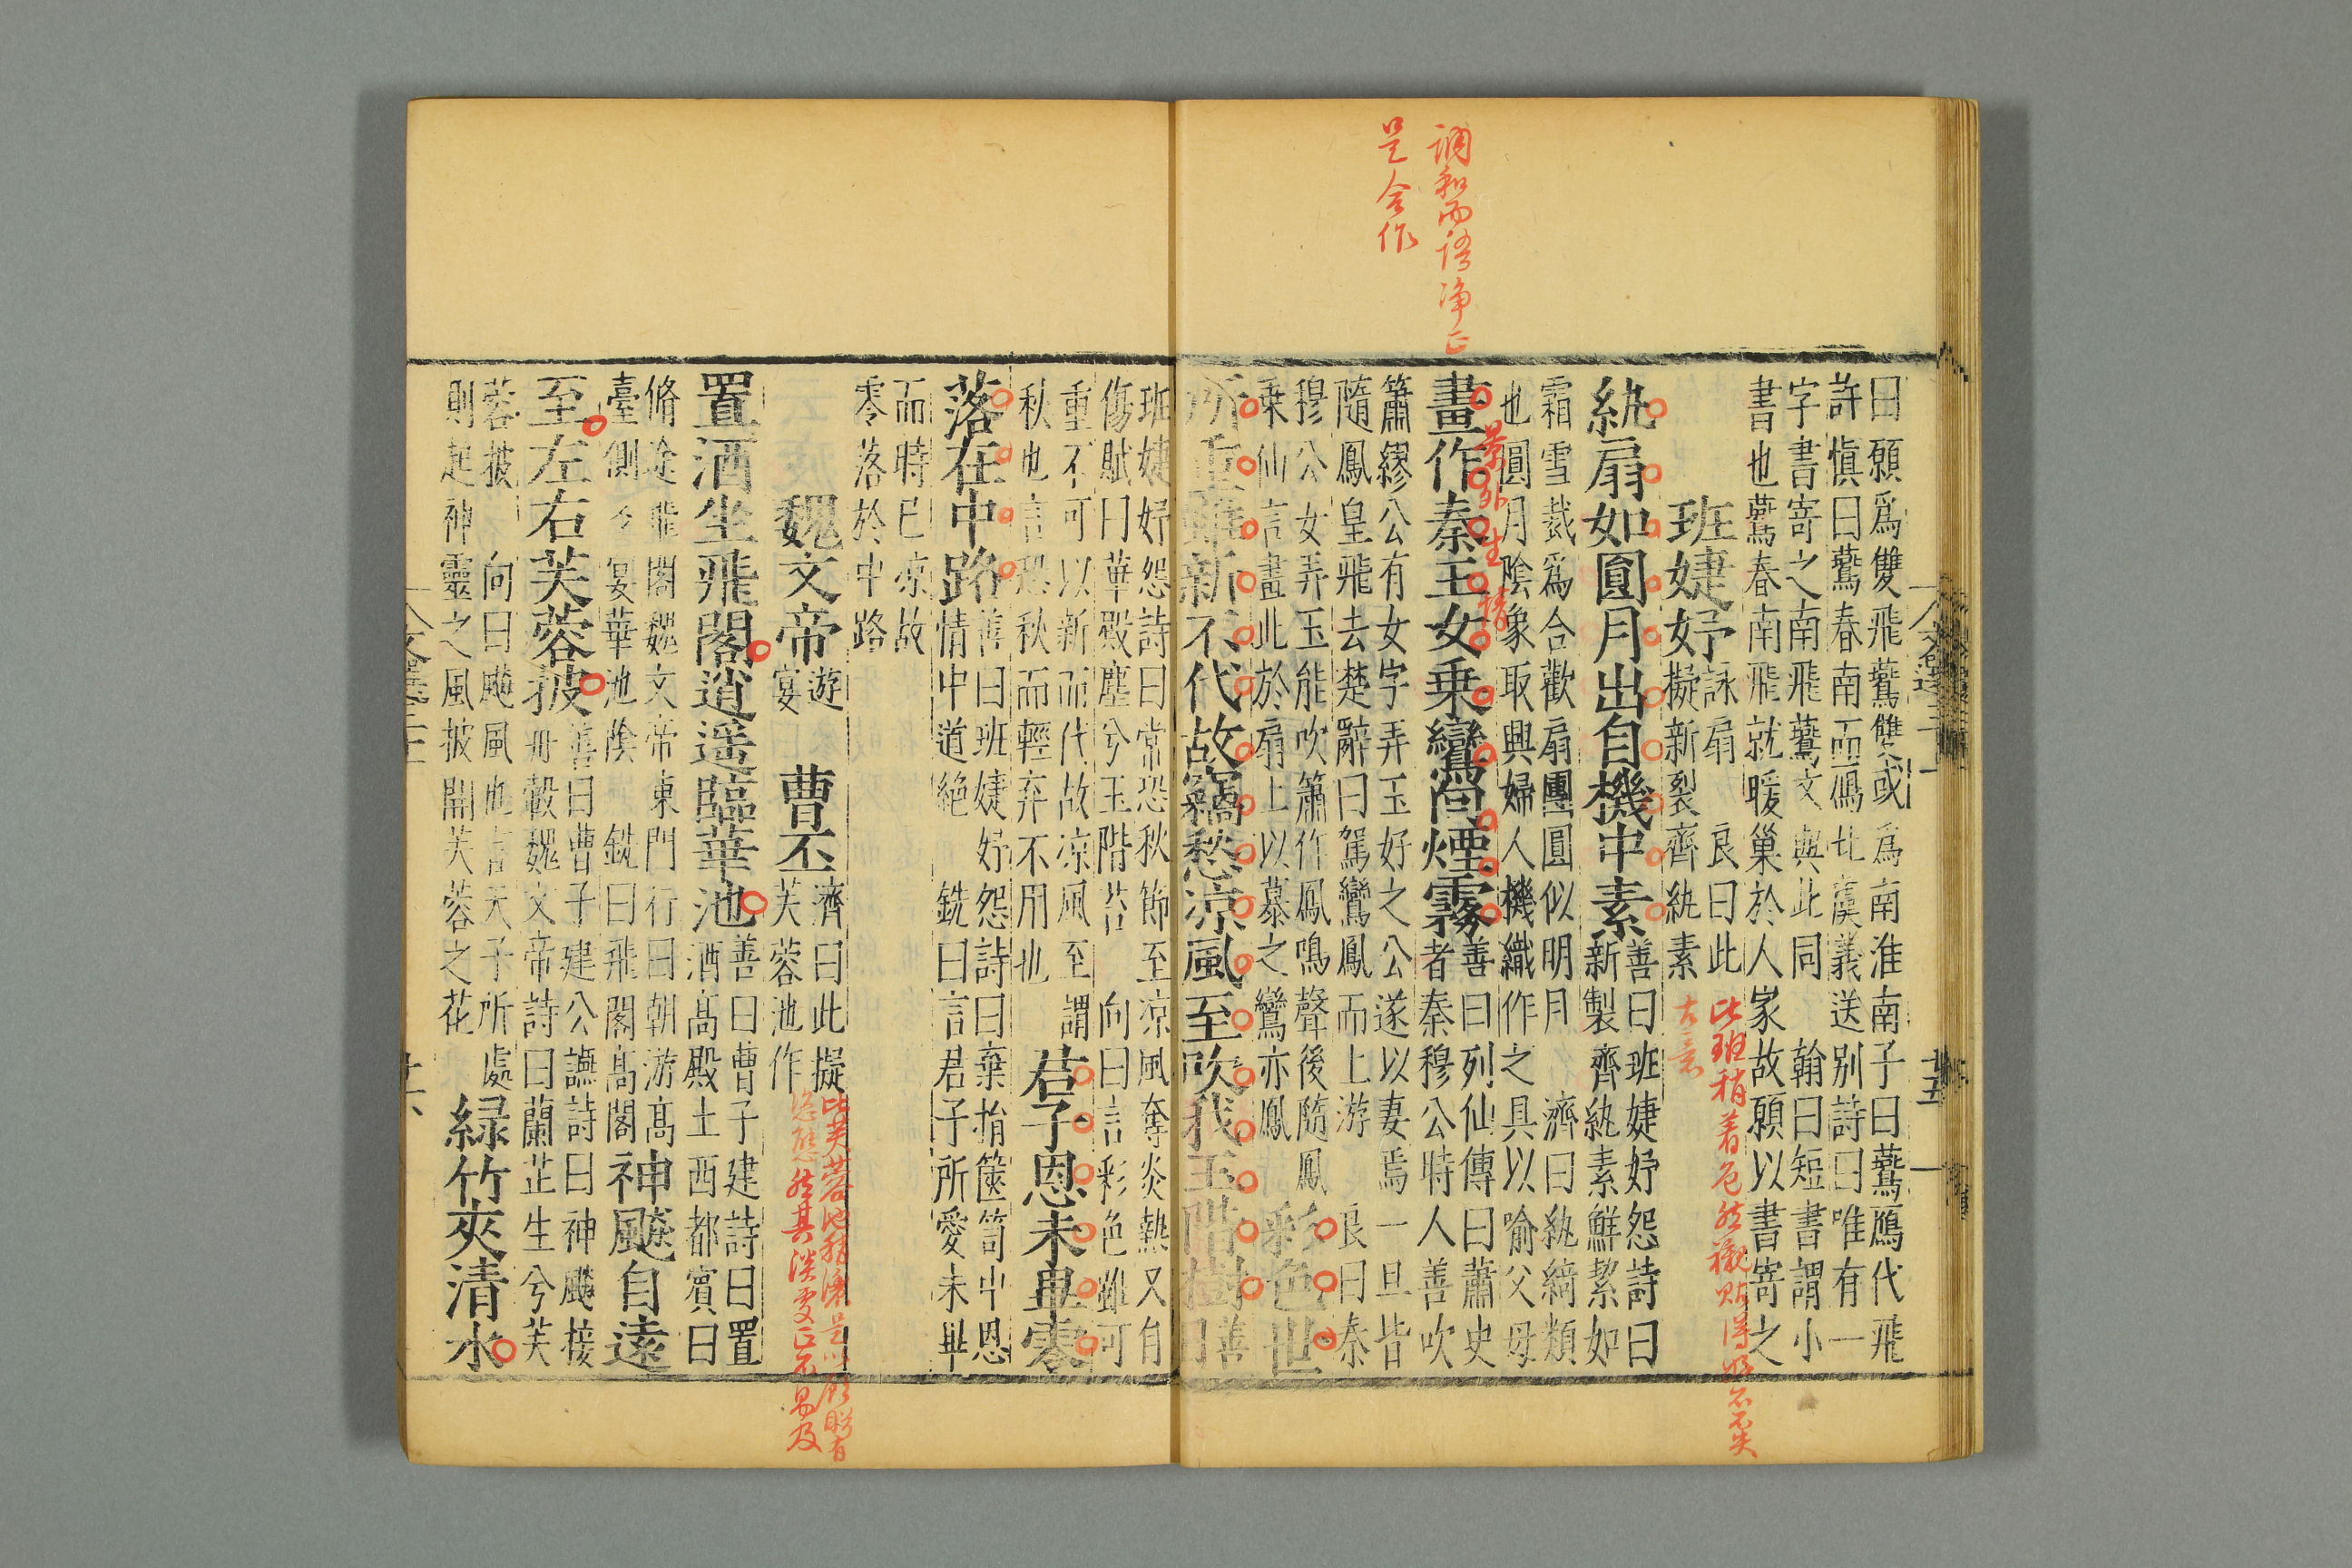 調和而語淨正
是合作
曰願爲雙飛鷰雙或爲南淮南子曰鷰鴈代飛
許慎曰鷰春南而鴈北虞義送别詩曰唯有一
字書寄之南飛鷰文與此同翰曰短書謂小
書也鷰春南飛就暖巢於人家故願以書寄之
班婕妤詠扇良曰此
擬新裂齊紈素
此班稍着色然襯貼得好不失
大意
紈扇如圓月出自機中素善曰班婕妤怨詩曰
新製齊紈素鮮絜如
霜雪裁爲合歡扇團圓似明月濟曰紈綺類
也圓月陰象取興婦人機織作之具以喻父母
景外生情
畫作秦王女乗鸞向煙霧善曰列仙傳曰蕭史
者秦穆公時人善吹
簫繆公有女字弄玉好之公遂以妻焉一旦皆
隨鳳皇飛去楚辭曰駕鸞鳳而上游良曰秦
穆公女弄玉能吹簫作鳳鳴聲後隨鳳
乗仙言畫此於扇上以慕之鸞亦鳳彩色世
所重雖新不代故竊愁凉風至吹我玉階樹善
曰
班婕妤怨詩曰常恐秋節至凉風奪炎熱又自
傷賦曰華殿塵兮玉階苔向曰言彩色雖可
重不可以新而代故凉風至謂
秋也言恐秋而輕弃不用也君子恩未畢零
落在中路善曰班婕妤怨詩曰棄捐篋笥中恩
情中道絶銑曰言君子所愛未畢
而時已凉故
零落於中路
魏文帝遊宴曹丕濟曰此擬
芙蓉池作
置酒坐飛閣逍遥臨華池善曰曹子建詩曰置
酒高殿土西都賓曰
脩途飛閣魏文帝東門行曰朝游高
臺側夕宴華池陰銑曰飛閣高閣神飈自遠
至左右芙蓉披善曰曹子建公讌詩曰神飈接
丹轂魏文帝詩曰蘭芷生兮芙
蓉披向曰飈風也言天子所處
則起神靈之風披開芙蓉之花緑竹夾清水